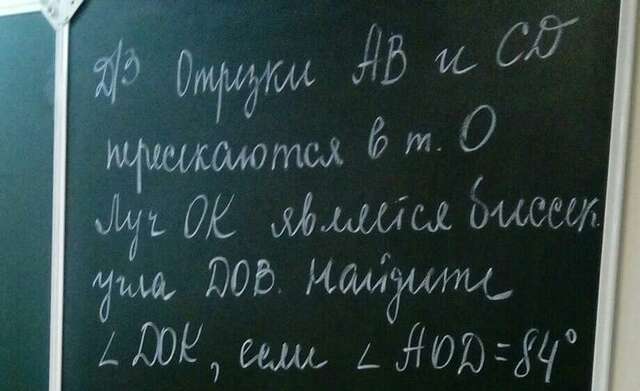 Д/З Отрезки AB и CD
пересекаются в т. O
Луч OK является биссек.
угла DOB. Найдите
∠ DOK, если ∠ AOD = 84°